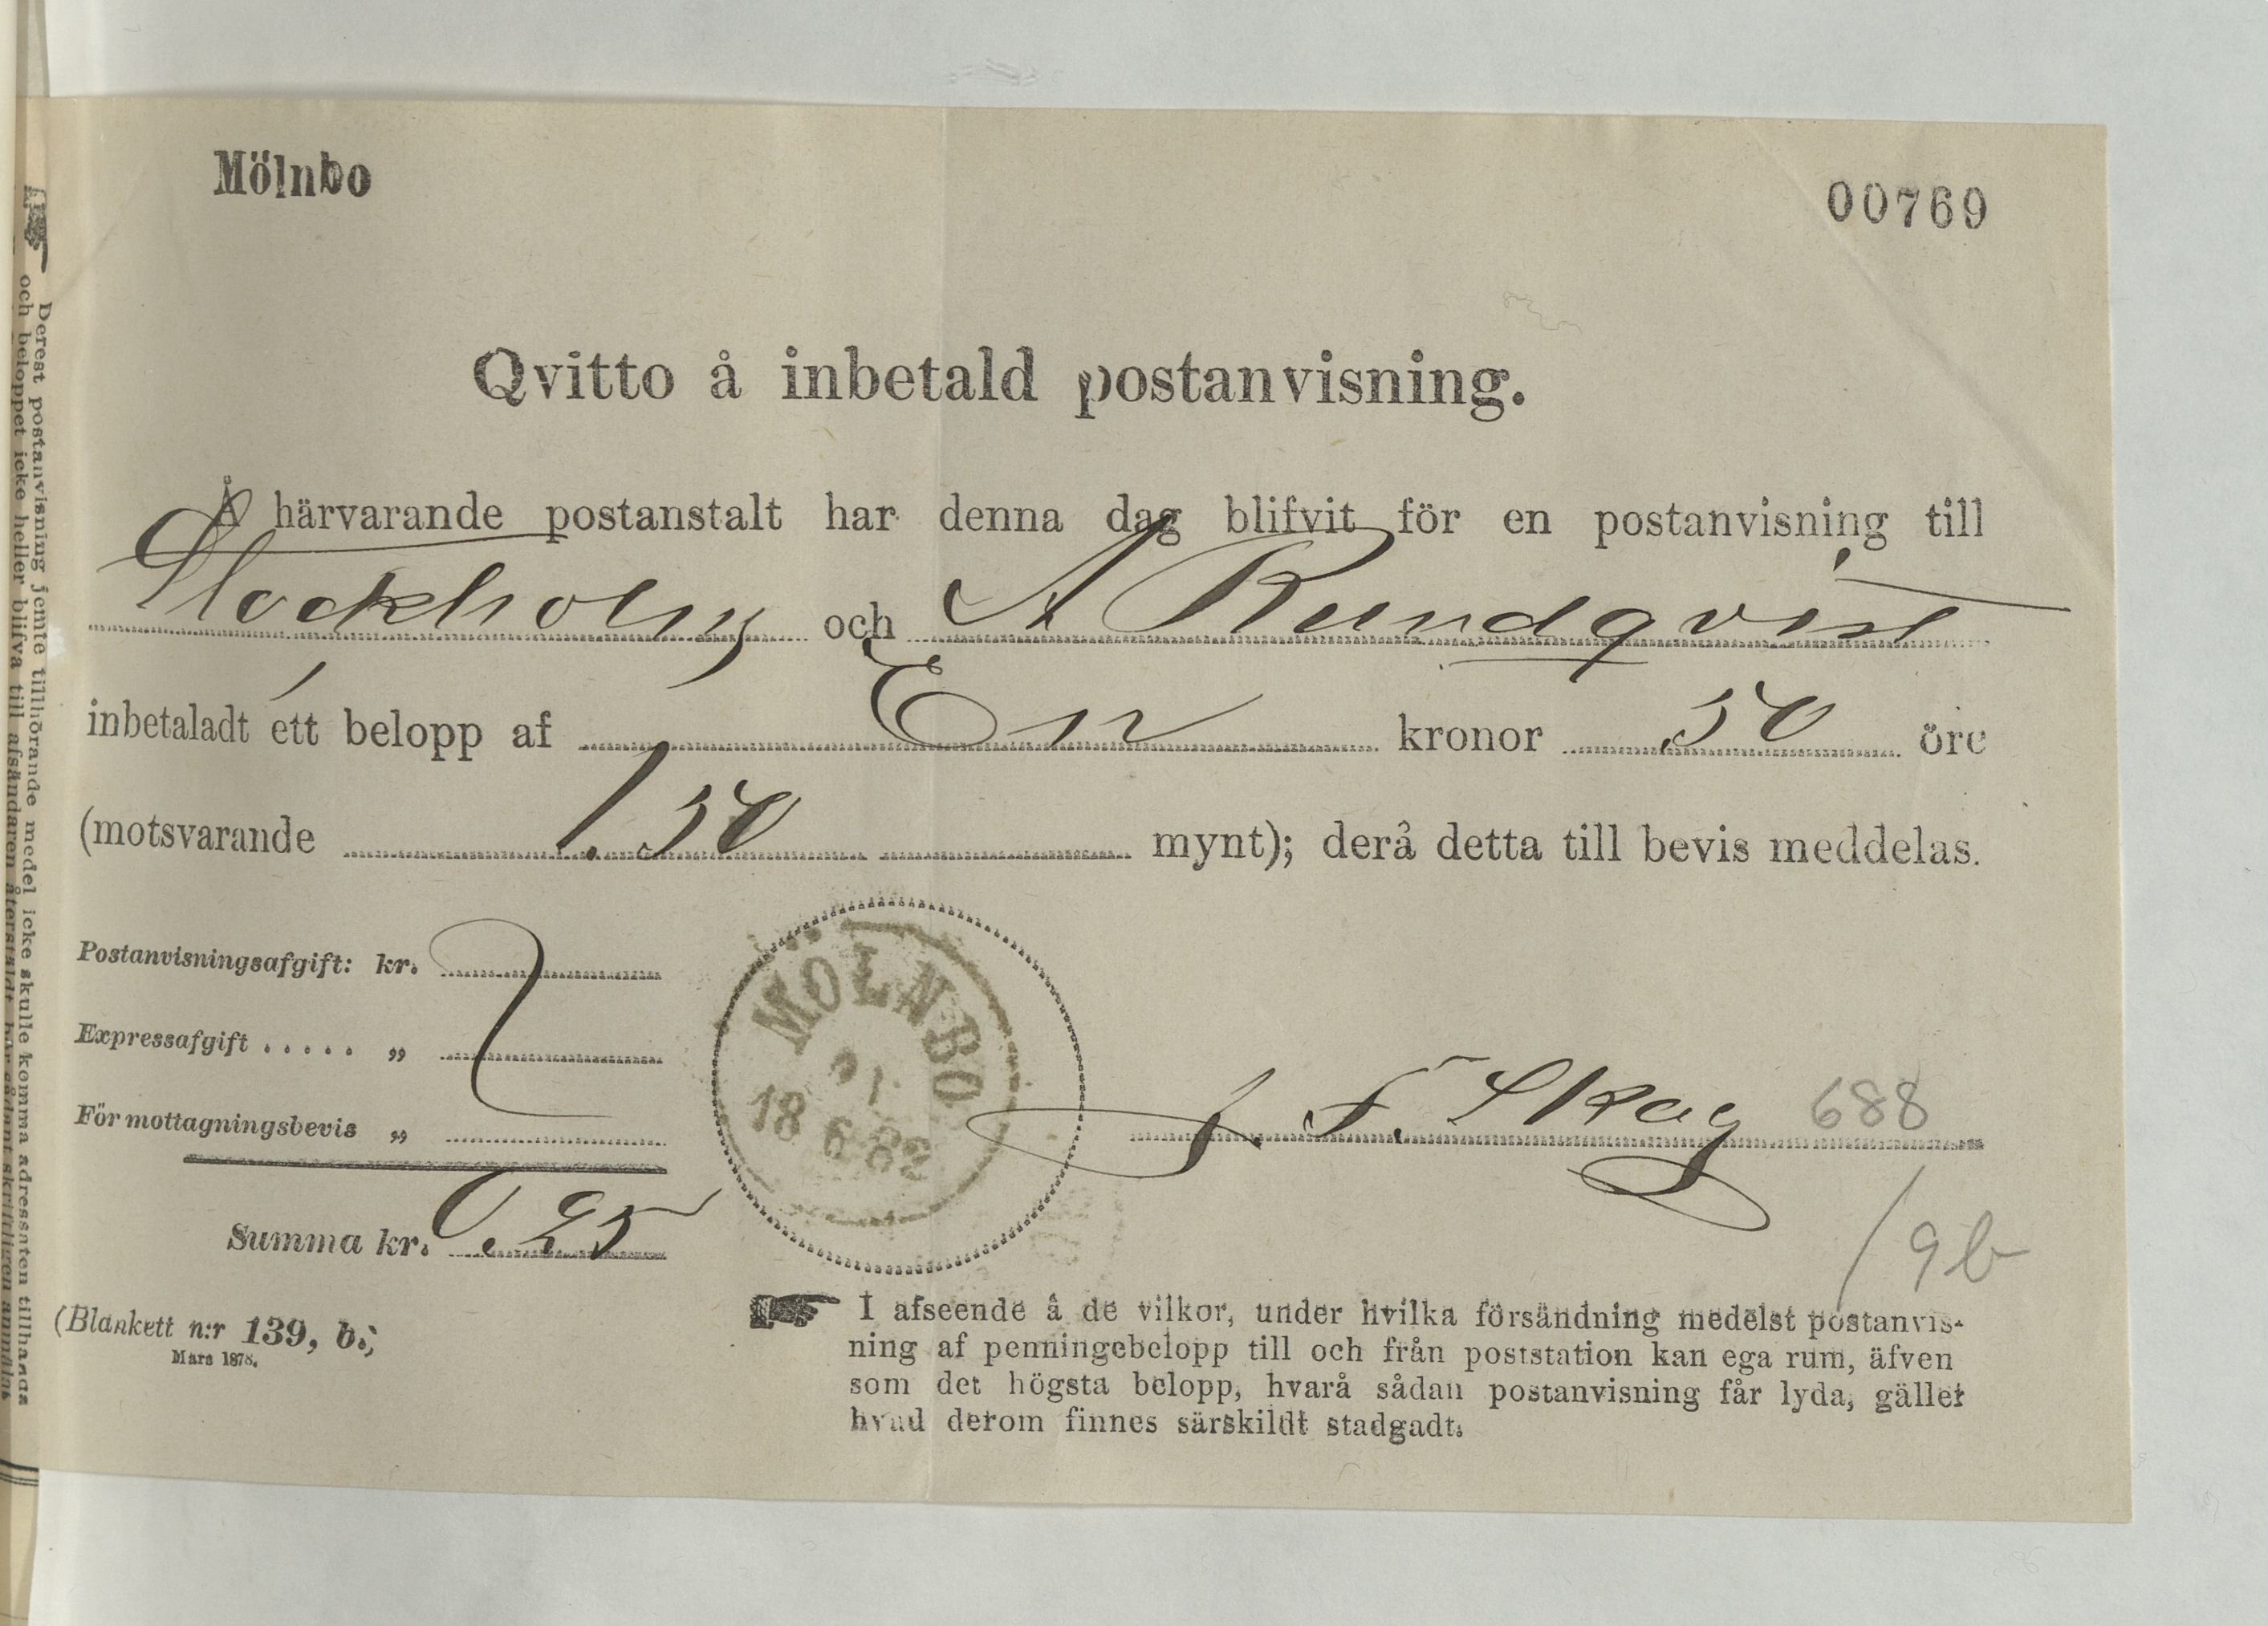 Mölnbo
00769
Qvitto å inbetald postanvisning.
Å härvarande postanstalt har denna dag blifvit för en postanvisning till
Stockholm och A Rundqvist
inbetaladt ett belopp af En kronor 50 öre
(motsvarande 1.50 mynt); derå detta till bevis meddelas.
Postanvisningsafgift: kr.
Expressafgift ..... „
För mottagningsbevis „
Summa kr. 0.25
MÖLNBO
18 6 82
J. F. Skog 688
/9b
(Blankett n:r 139, b.)
Mars 1878.
I afseende å de vilkor, under hvilka försändning medelst postanvis-
ning af penningebelopp till och från poststation kan ega rum, äfven
som det högsta belopp, hvarå sådan postanvisning får lyda, gäller
hvad derom finnes särskildt stadgadt.
Derest postanvisning jemte tillhörande medel icke skulle komma adressaten tillhanda
och beloppet icke heller blifva till afsändaren återstäldt